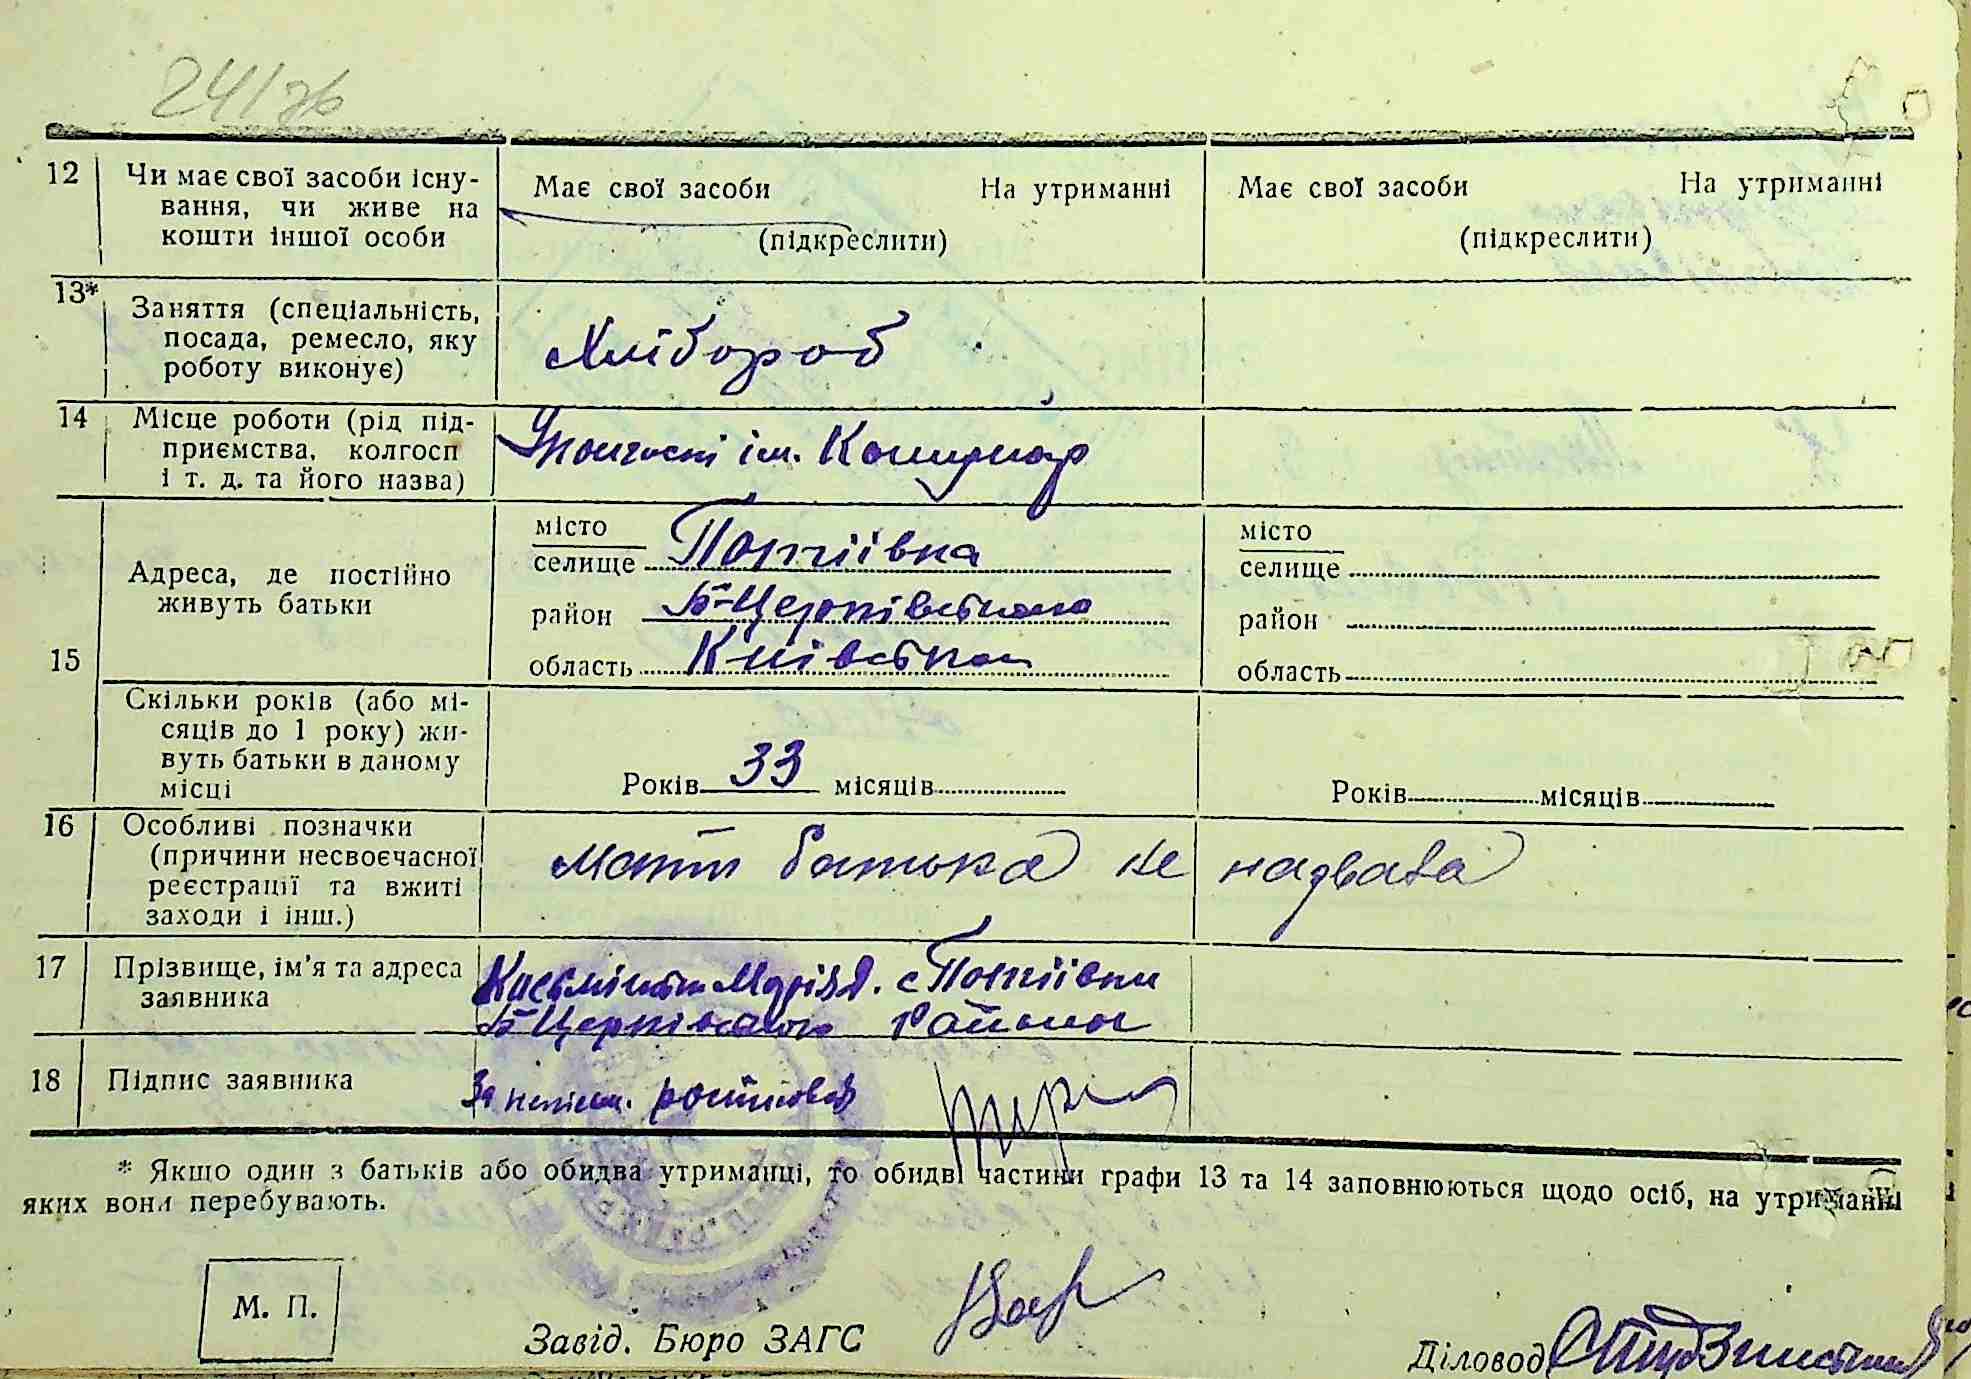 24/зв
12
Чи має свої засоби існу-
вання, чи живе на
кошти іншої особи
Має свої засоби На утриманні
(підкреслити)
Має свої засоби На утриманні
(підкреслити)
13*
Заняття (спеціальність,
посада, ремесло, яку
роботу виконує)
Хлібороб
14
Місце роботи (рід під-
приємства, колгосп
і т. д. та його назва)
ім.
15
Адреса, де постійно
живуть батьки
місто
селище Потіївка
район Б-Церківського
область Київська
місто
селище
район
область
Скільки років (або мі-
сяців до 1 року) жи-
вуть батьки в даному
місці
Років 33 місяців
Років місяців
16
Особливі позначки
(причини несвоєчасної
реєстрації та вжиті
заходи і інш.)
Мати батька не назвала
17
Прізвище, ім'я та адреса
заявника
Марія с Потіївки
Б Церківського Району
18
Підпис заявника
За непісьм. росписався
* Якщо один з батьків або обидва утриманці, то обидві частини графи 13 та 14 заповнюються щодо осіб, на утриманні
яких вони перебувають.
М. П.
Завід. Бюро ЗАГС
Діловод